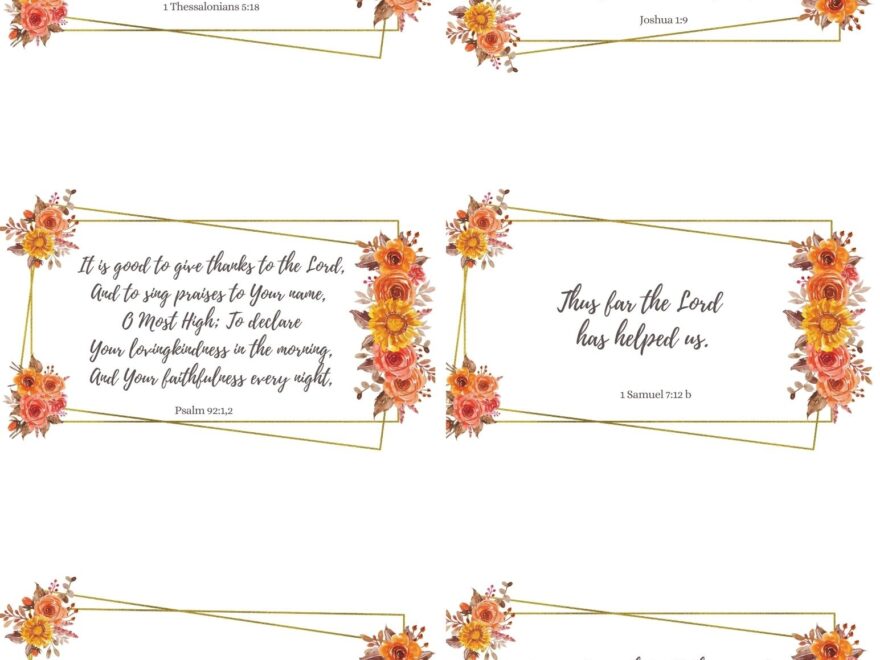 1 Thessalonians 5:18
Joshua 1:9
It is good to give thanks to the Lord,
And to sing praises to Your name,
O Most High; To declare
Your lovingkindness in the morning,
And Your faithfulness every night,
Psalm 92:1,2
Thus far the Lord
has helped us.
1 Samuel 7:12 b